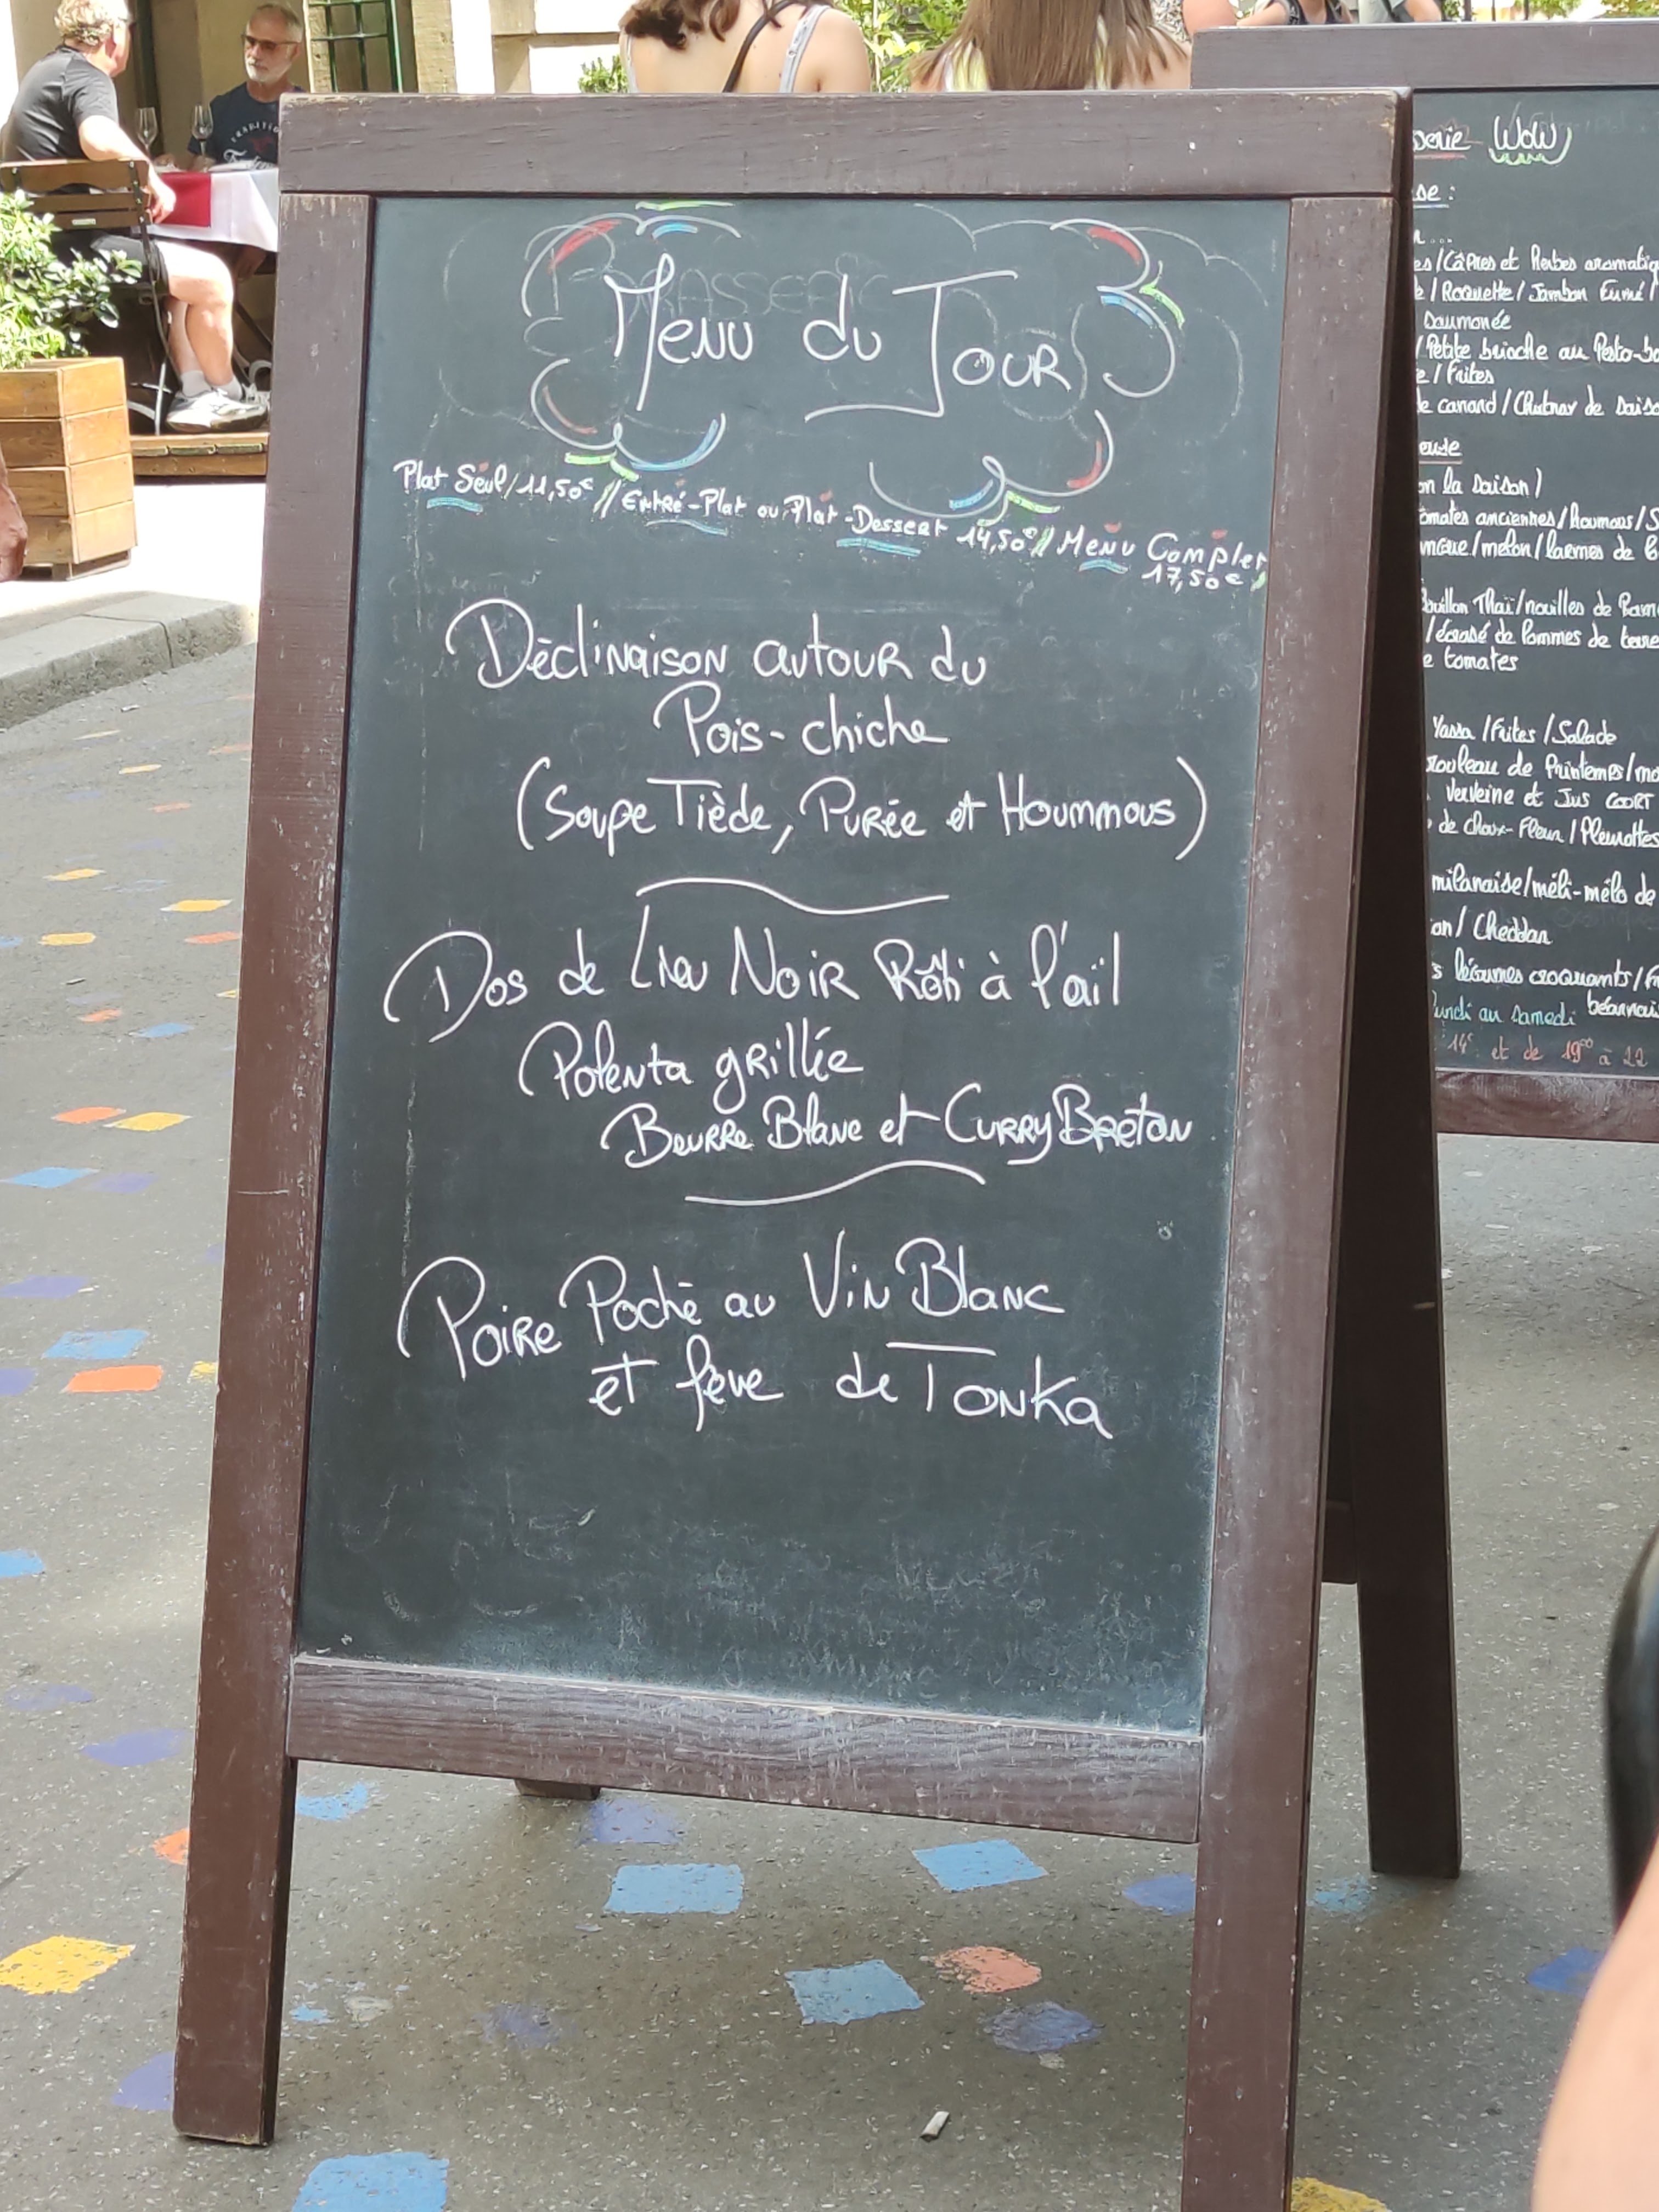 Menu du Jour
Plat Seul/11,50€ // Entré-Plat ou Plat-Dessert 14,50€ // Menu Complet
17,50€
Déclinaison autour du
Pois-chiche
(Soupe Tiède, Purée et Hoummous)
Dos de Lieu Noir Rôti à l'ail
Polenta grillée
Beurre Blanc et Curry Breton
Poire Poché au Vin Blanc
et fève de Tonka
WoW
es/Câpres et Herbes aromatiq
/Roquette/Jambon Fumé/
Saumonée
/Petite brioche au Pesto-ba
/Frites
de canard/Chutney de saiso
on la saison)
omates anciennes/Houmous/S
/melon/larmes de b
Bouillon Thaï/nouilles de Ram
/écrasé de Pommes de terre
de tomates
Yassa/Frites/Salade
rouleau de Printemps/
verveine et Jus court
de choux-Fleur/Pleurottes
milanaise/méli-mélo de
/Cheddar
s légumes croquants/
béarnais
undi au samedi
et de 19°° à 22